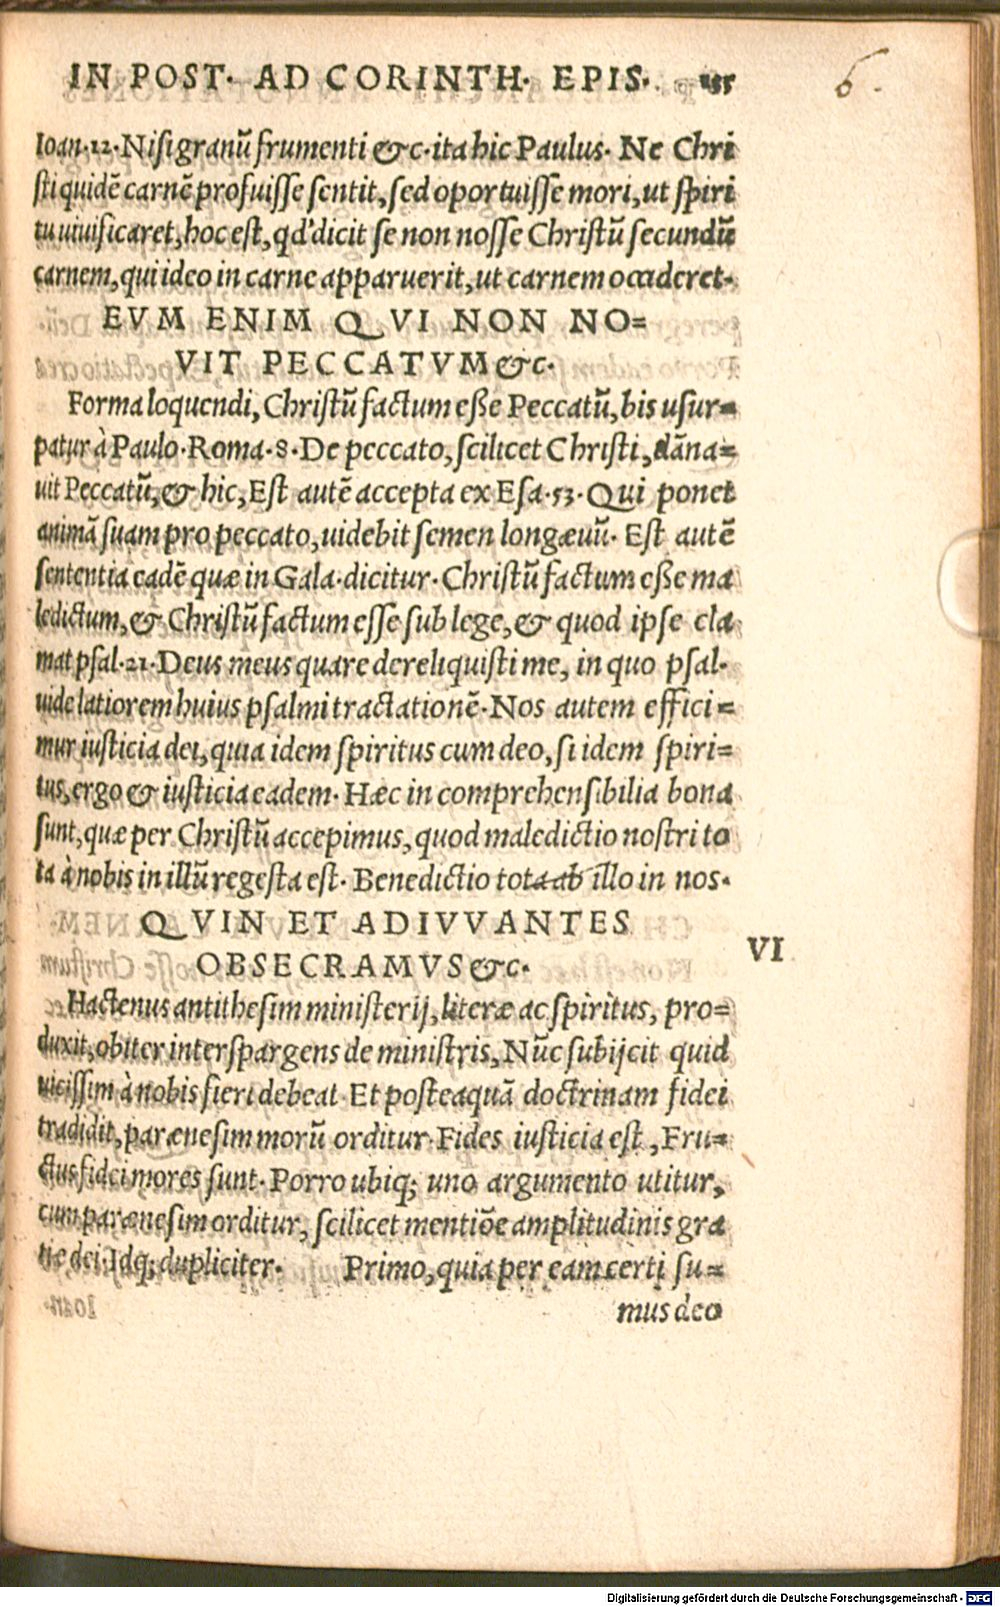 IN POST. AD CORINTH. EPIS. 135
6.
Ioan.12.Nisi granũ frumenti &c.ita hic Paulus. Ne Chri
sti quidẽ carnẽ profuisse sentit, sed oportuisse mori, ut spiri
tu uiuificaret, hoc est, qd' dicit se non nosse Christũ secundũ
carnem, qui ideo in carne apparuerit, ut carnem occideret.
EVM ENIM QVI NON NO=
VIT PECCATVM &c.
Forma loquendi, Christũ factum eße Peccatũ, bis usur=
patur à Paulo. Roma.8. De peccato, scilicet Christi, dãna=
uit Peccatũ, & hic, Est autẽ accepta ex Esa.53. Qui ponet
animã suam pro peccato, uidebit semen longæuũ. Est autẽ
sententia eadẽ quæ in Gala.dicitur. Christũ factum eße ma
ledictum, & Christũ factum esse sub lege, & quod ipse cla
mat psal.21. Deus meus quare dereliquisti me, in quo psal.
uide latiorem huius psalmi tractationẽ. Nos autem effici=
mur iusticia dei, quia idem spiritus cum deo, si idem spiri=
tus, ergo & iusticia eadem. Hæc incomprehensibilia bona
sunt, quæ per Christũ accepimus, quod maledictio nostri to
ta à nobis in illũ regesta est. Benedictio tota ab illo in nos.
QVIN ET ADIVVANTES
OBSECRAMVS &c.
VI
Hactenus antithesim ministerij, literæ ac spiritus, pro=
duxit, obiter interspargens de ministris, Nũc subijcit quid
uicissim à nobis fieri debeat. Et posteaquã doctrinam fidei
tradidit, parænesim morũ orditur. Fides iusticia est, Fru=
ctus fidei mores sunt. Porro ubiq; uno argumento utitur,
cum parænesim orditur, scilicet mentiõe amplitudinis gra
tiæ dei. Idq; dupliciter. Primo, quia per eam certi su=
mus deo
Digitalisierung gefördert durch die Deutsche Forschungsgemeinschaft - DFG